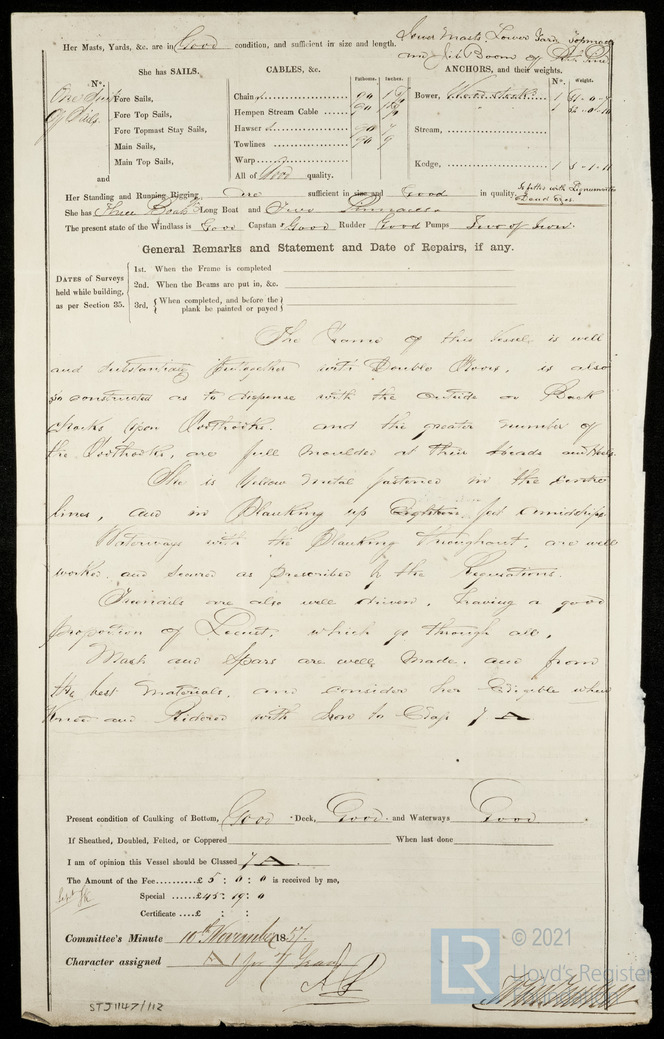 Her Masts, Yards, &c. are in Good condition, and sufficient in size and length. Lower Masts. Lower Yards Topmasts
and Jib Boom of
She has SAILS. CABLES, &c. ANCHORS, and their weights.
N°. Fathoms. Inches. N°. Weight.
One Suit Fore Sails, Chain 90 Bower, 1
of Sails. Fore Top Sails, Hempen Stream Cable 90 1
Fore Topmast Stay Sails, Hawser 90 7 Stream,
Main Sails, Towlines 90
Main Top Sails, Warp
and All of Good quality. Kedge, 1
Her Standing and Running Rigging are sufficient in size and Good in quality. is fitted with Lignumvitae
Dead Eyes.
She has Three Boats Long Boat and Two Pinnaces
The present state of the Windlass is Good Capstan Good Rudder Good Pumps Two of Iron.
General Remarks and Statement and Date of Repairs, if any.
DATES of Surveys held while building, as per Section 35.
1st. When the Frame is completed
2nd. When the Beams are put in, &c.
3rd. When completed, and before the plank be painted or payed
The Frame of this Vessel is well
and substantially put together with Double Floors, is also
so constructed as to dispense with the outside or Back
Chocks upon Foothooks. and the greater number of
the Foothooks, are full moulded at their heads and Heels.
She is Yellow Metal fastened in the centre
lines, and in Planking up Eighteen feet amidships
Waterways with the Planking throughout, are well
worked and secured as prescribed by the Regulations.
Treenails are also well driven, having a good
proportion of Locust, which go through all,
Masts and Spars are well made. and from
the best materials, and consider her Eligible when
Kneed and Ridered with Iron to Class 7 A
Present condition of Caulking of Bottom, Good Deck, Good and Waterways Good
If Sheathed, Doubled, Felted, or Coppered When last done
I am of opinion this Vessel should be Classed 7 A
The Amount of the Fee £5 : 0 : 0 is received by me,
Special £45 : 19 : 0
Certificate £ : :
Committee's Minute 10th November 1857.
Character assigned A 1 for 7 Years
STJ1147/112
LR © 2021
Lloyd's Register
Foundation